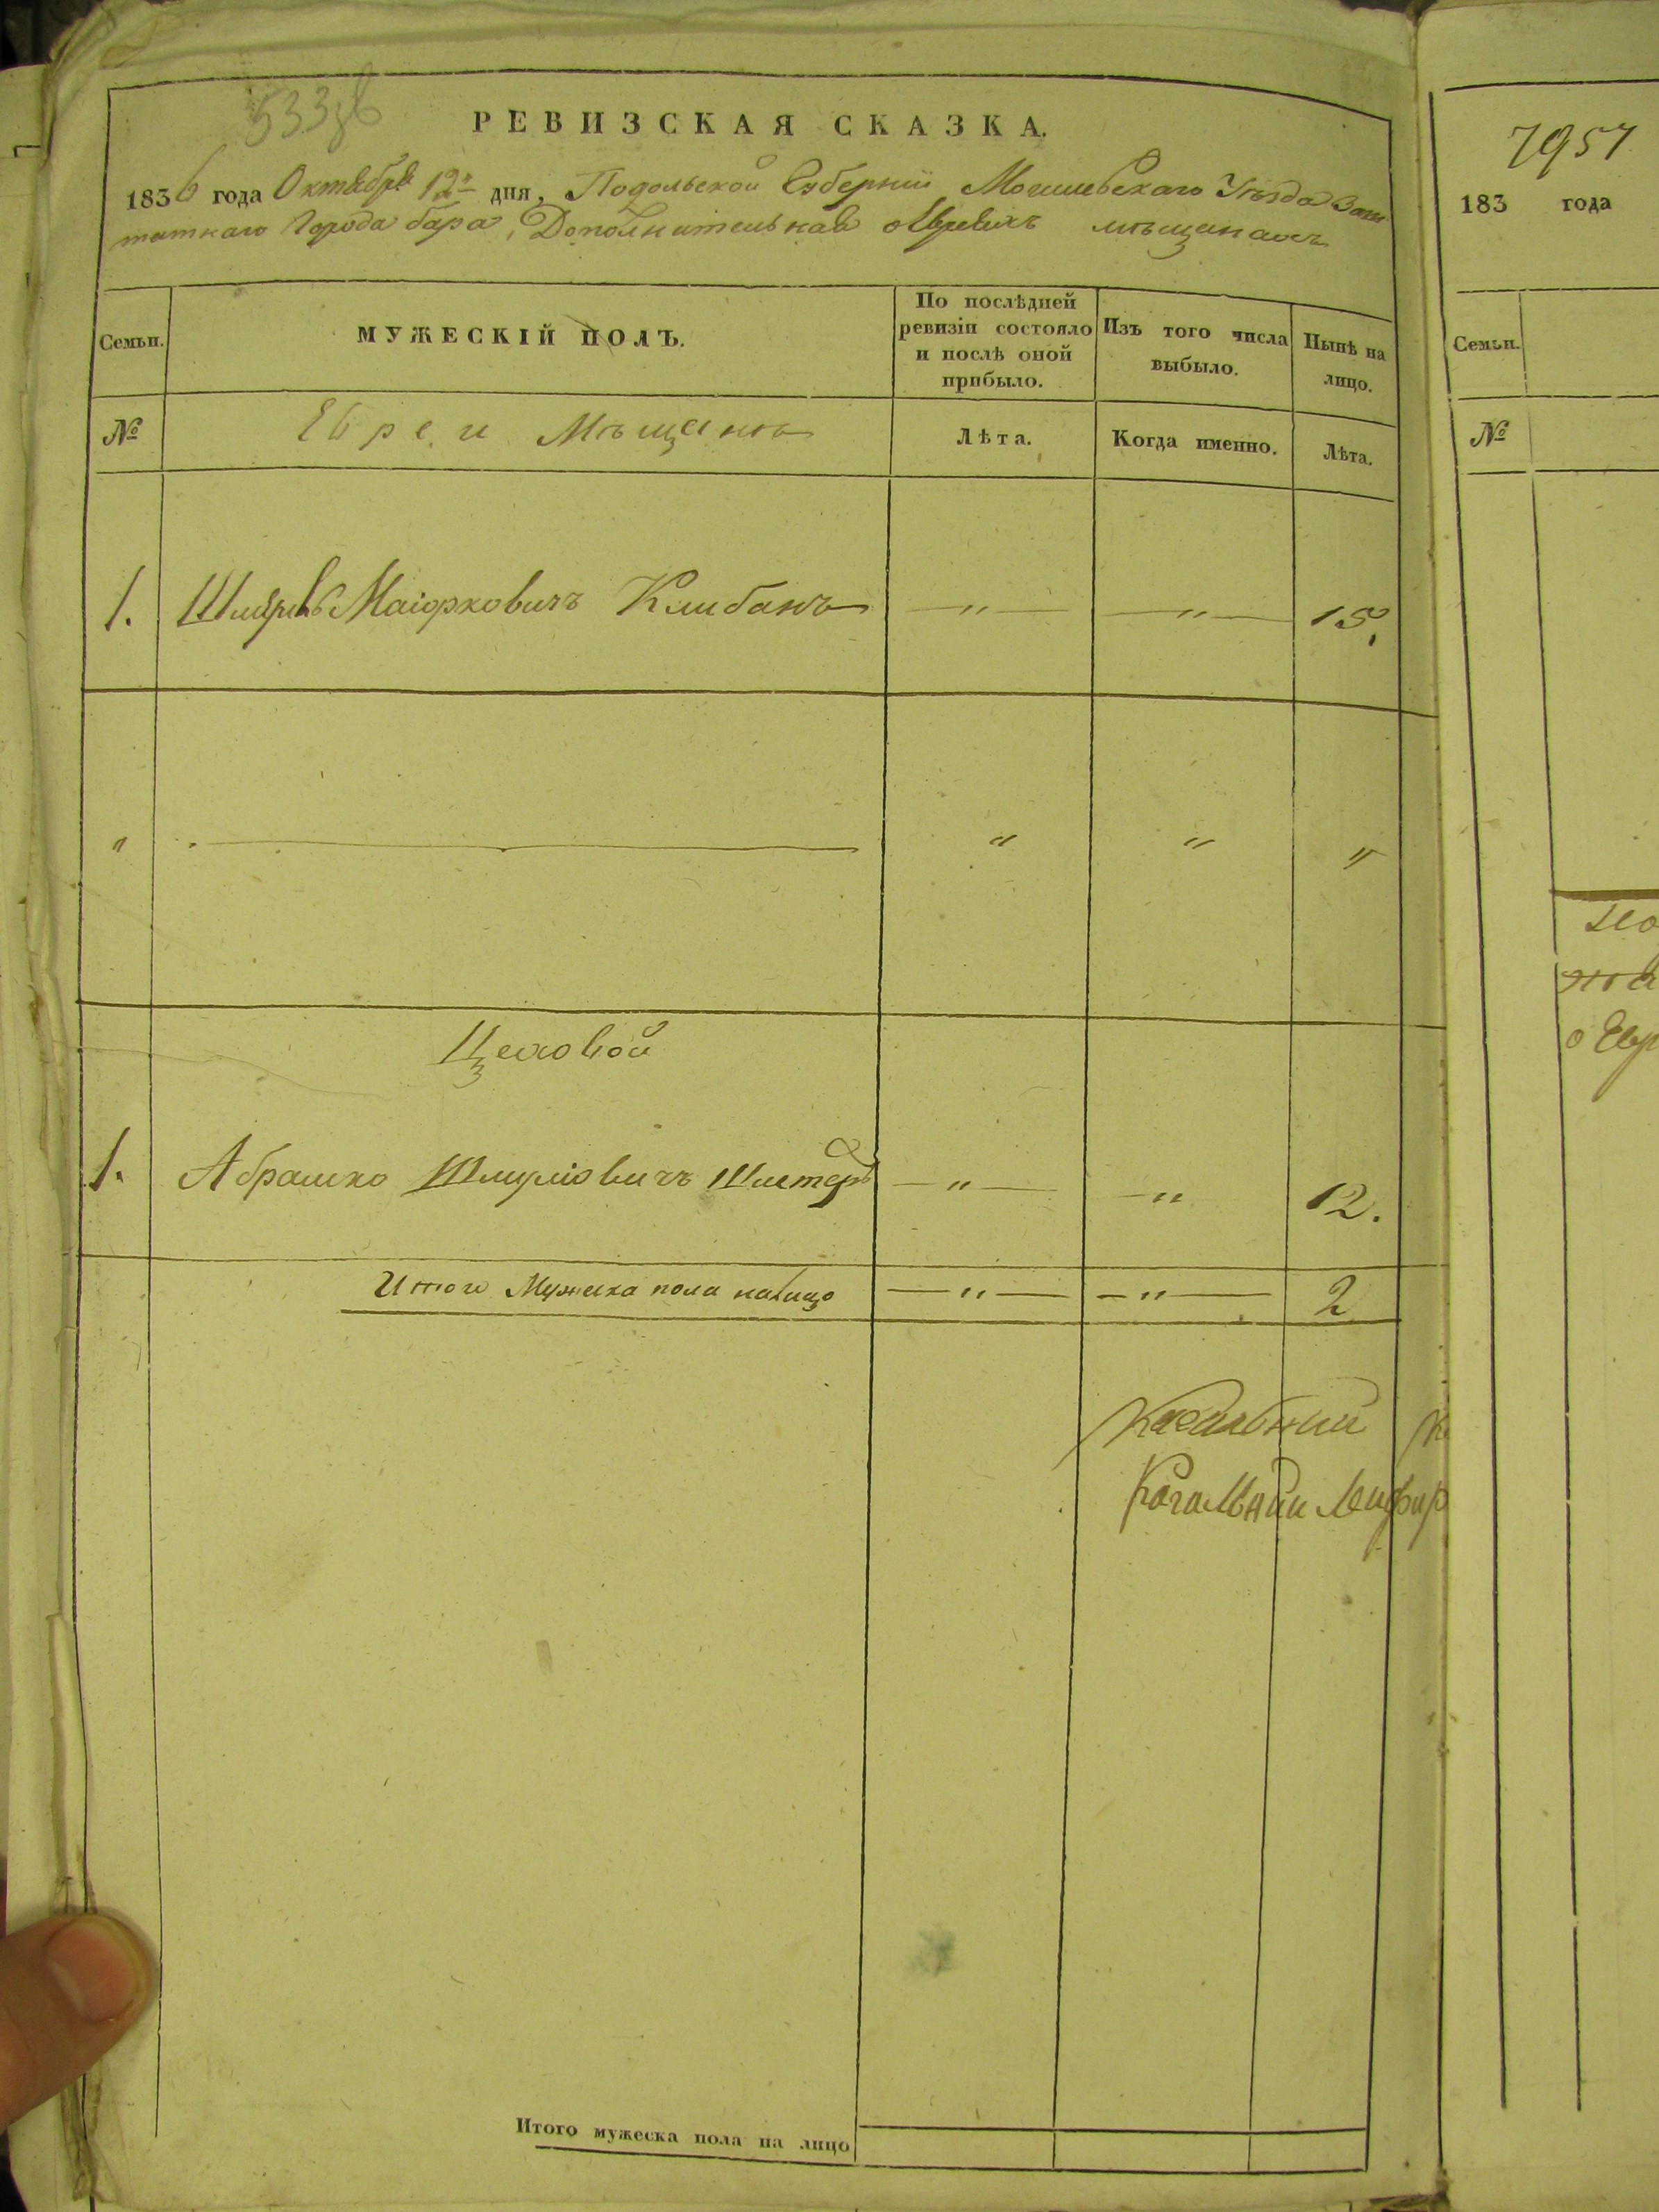 РЕВИЗСКАЯ СКАЗКА.
1836 года Октября 12го дня, Подольской Губерніи Могилевскаго Уѣзда Заш
татнаго Города бара, Дополнительная о Евреяхъ мѣщанахъ
Семьи. МУЖЕСКІЙ ПОЛЪ. По послѣдней ревизіи состояло и послѣ оной прибыло. Изъ того числа выбыло. Нынѣ на лицо.
№ Евреи Мѣщанѣ Лѣта. Когда именно. Лѣта.
1. Маіорковичъ Клибанъ — " — — " — 15.
" " " "
Цеховой
1. Абрашко Шмуліовичъ Шистеръ — " — — " 12.
Итого Мужеска пола налицо — " — — " — 2
Кагальный
Кагальный
Итого мужеска пола на лицо
7957
183 года
Семьи.
№
о Евр